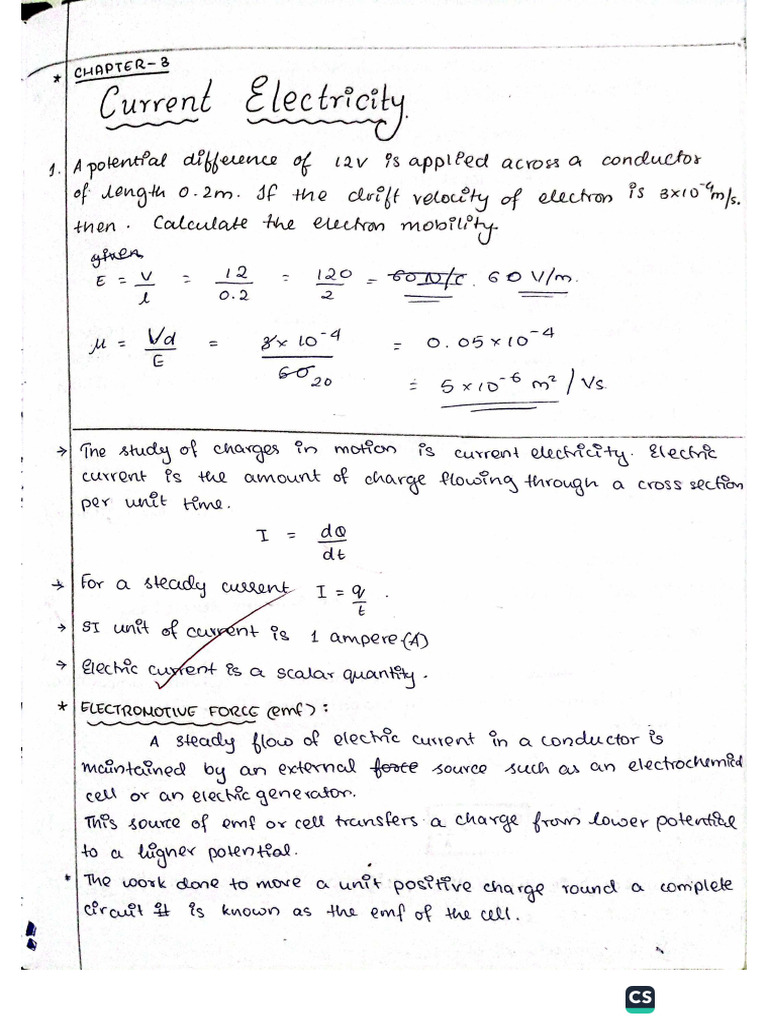 * CHAPTER-3
Current Electricity.
1. A potential difference of 12V is applied across a conductor
of length 0.2m. If the drift velocity of electron is 3×10⁻⁴m/s.
then. Calculate the electron mobility.
given
E = V/l = 12/0.2 = 120/2 = 60 N/C. 60 V/m.
μ = Vd/E = 3×10⁻⁴/60 20 = 0.05×10⁻⁴
= 5×10⁻⁶ m²/Vs
→ The study of charges in motion is current electricity. Electric
current is the amount of charge flowing through a cross section
per unit time.
I = dQ/dt
→ For a steady current I = q/t.
→ SI unit of current is 1 ampere (A)
→ Electric current is a scalar quantity.
* ELECTROMOTIVE FORCE (emf):
A steady flow of electric current in a conductor is
maintained by an external force source such as an electrochemical
cell or an electric generator.
This source of emf or cell transfers a charge from lower potential
to a higher potential.
* The work done to move a unit positive charge round a complete
circuit it is known as the emf of the cell.
CS